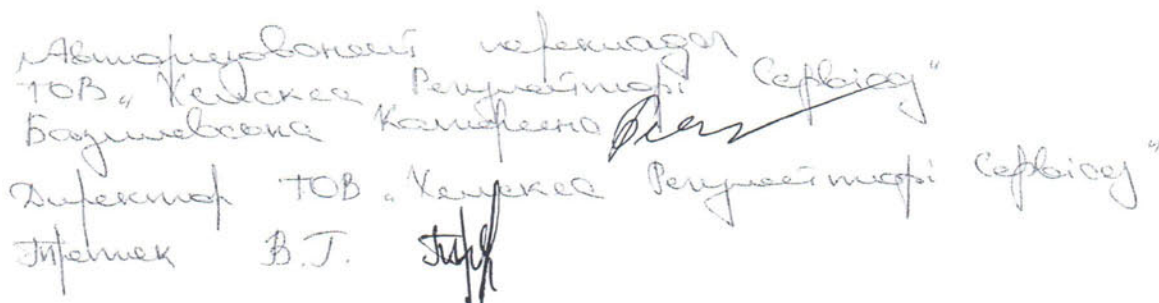 Авторизований перекладач
ТОВ „Хемскеа Регулейторі Сервісез"
Базилевська Катерина
Директор ТОВ „Хемскеа Регулейторі Сервісез"
Третек В.Г.